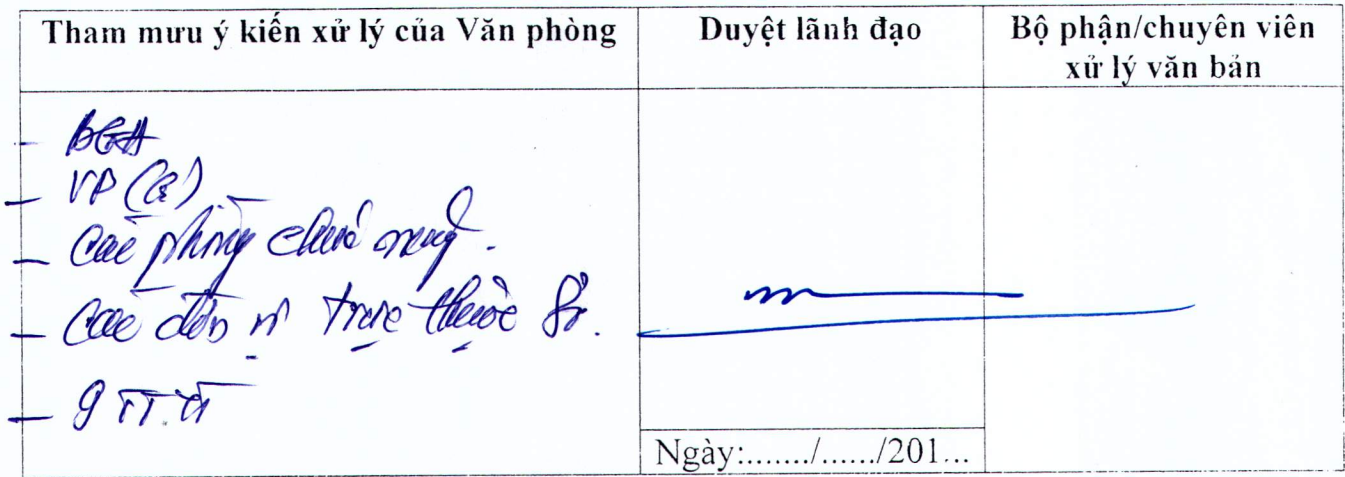 Tham mưu ý kiến xử lý của Văn phòng
Duyệt lãnh đạo
Bộ phận/chuyên viên
xử lý văn bản
- BGĐ
- VP
- Các phòng chức năng.
- Các đơn vị trực thuộc Sở.
- 9
Ngày:......./....../201...